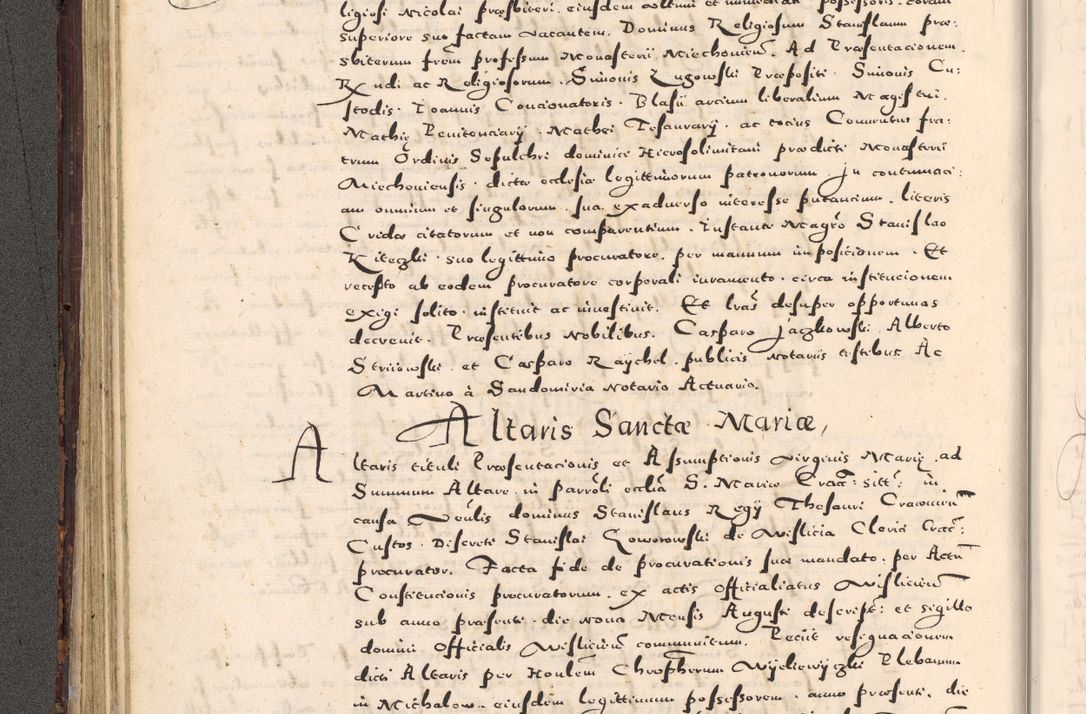 ligiosi Nicolai præsbiteri, eiusdem ultimi et immediati possessoris, coram
superiore suo factam vacantem. Dominus Religiosum Stanislaum præ:
sbiterum frem professum Monasterii Miechouien̄. Ad Præsentacionem
Rx̄ndi ac Religiosorum. Simonis Zugowski Præpositi. Simonis Cu:
stodis. Joannis Concionatoris. Blasii arcium liberalium Magistri.
Mathię Penitenciarij. Mathei Tesaurarij. ac tocius Conuentus fra:
trum Ordinis Sepulchri dominici Hierosolimitani prædicti Monasterii
Miechouiensis. dictæ ecclesiæ legittimorum patronorum. in contumaci:
am omnium et singulorum. sua ex aduerso interesse putancium. literis
Cridæ citatorum et non comparentium. Instante Magrō Stanislao
Kiteczki. suo legittimo procuratore. per manuum imposicionem. Et
recepto ab eodem procuratore corporali iuramento. circa institucionem
exigi solito. instituit ac inuestiuit. Et lrās desuper opportunas
decreuit. Præsentibus Nobilibus. Casparo Jaczkowski. Alberto
Strziowski. et Casparo Raychel. publicis Notariis testibus. Ac
Martino à Sandomiria Notario Actuario.
Altaris Sanctæ Mariæ,
Altaris tituli Præsentacionis et Assumptionis virginis Mariæ. ad
Summum Altare. in parrōli ecclīa S. Mariæ Crac̄: sitt̄: in
causa Venlis dominus Stanislaus Regij Thesauri Cracouien̄
Custos. Discreti Stanislai Goworowski de Wislicia Clerici Crac̄:
procurator. Facta fide de procurationis suæ mandato. per Actū
Constitucionis procuratorum. ex actis Officialiatus Wislicien̄
sub anno præsenti. die nona Mensis Augusti descript̄: et sigillo
domini Officialis Wislicien̄ communitum. Peciit resignacionem
dicti Altaris per Honlem Chrophorum Wyelewijczki Plebanum
in Michalow. eiusdem legittimum possessorem. anno præsenti. die